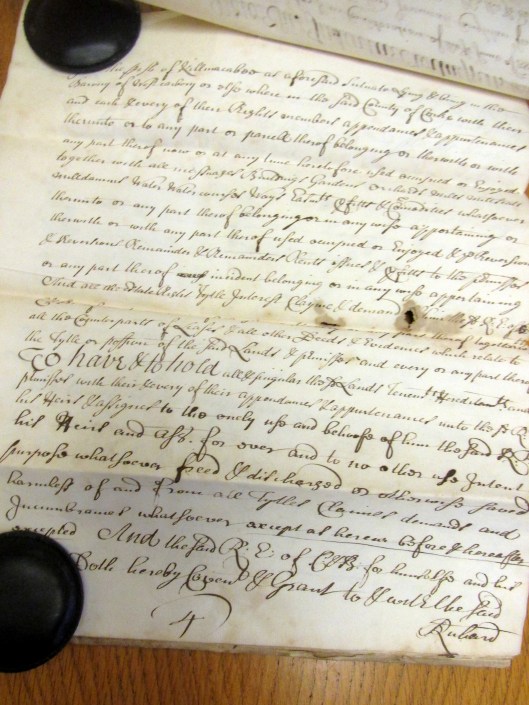 Parish of Killmacabee as aforesaid Scituate lying & being in the
Barony of West Carbury or else where in the said County of Corke with their
and each & every of their Rights members appendances & appurtenances
thereunto or to any part or parcell thereof belonging or therewith or with
any part thereof now or at any time heretofore used occupied or Enjoyed
together with all messuages Buildings Gardens orchards
Water Watercourses Ways Easmts whatsoever
thereunto or any part thereof belonging or in any wise appertaining or
therewith or with any part thereof used occupied or Enjoyed & ye Reversion
& Reversions Remainder & Remainders Rents issues & to the premisses
or any part thereof incident belonging or in any wise appertaining
And all the Estate Right Tytle Interest Clayme & demand
part thereof together
all the Counterparts of Leases & all other Deeds & Evidences which relate to
the Tytle or possion of the said Lands & premisses and every or any part thereof
To have & to hold all & singular the sd Lands Tenemts Heredits and
premisses with their & every of their appendances & appurtenances unto the sd R
his Heirs & assignes to the only use and behoofe of him the said R
his Heirs and ass. for ever and to no other use Intent
purpose whatsoever freed & discharged or otherwise saved
harmless of and from all Tytles Claymes demands and
Incumbrances whatsoever except as herein before & hereafter
excepted And the said R: E: of for himselfe and his
Doth hereby Coven & Grant to & with the said
Richard
4